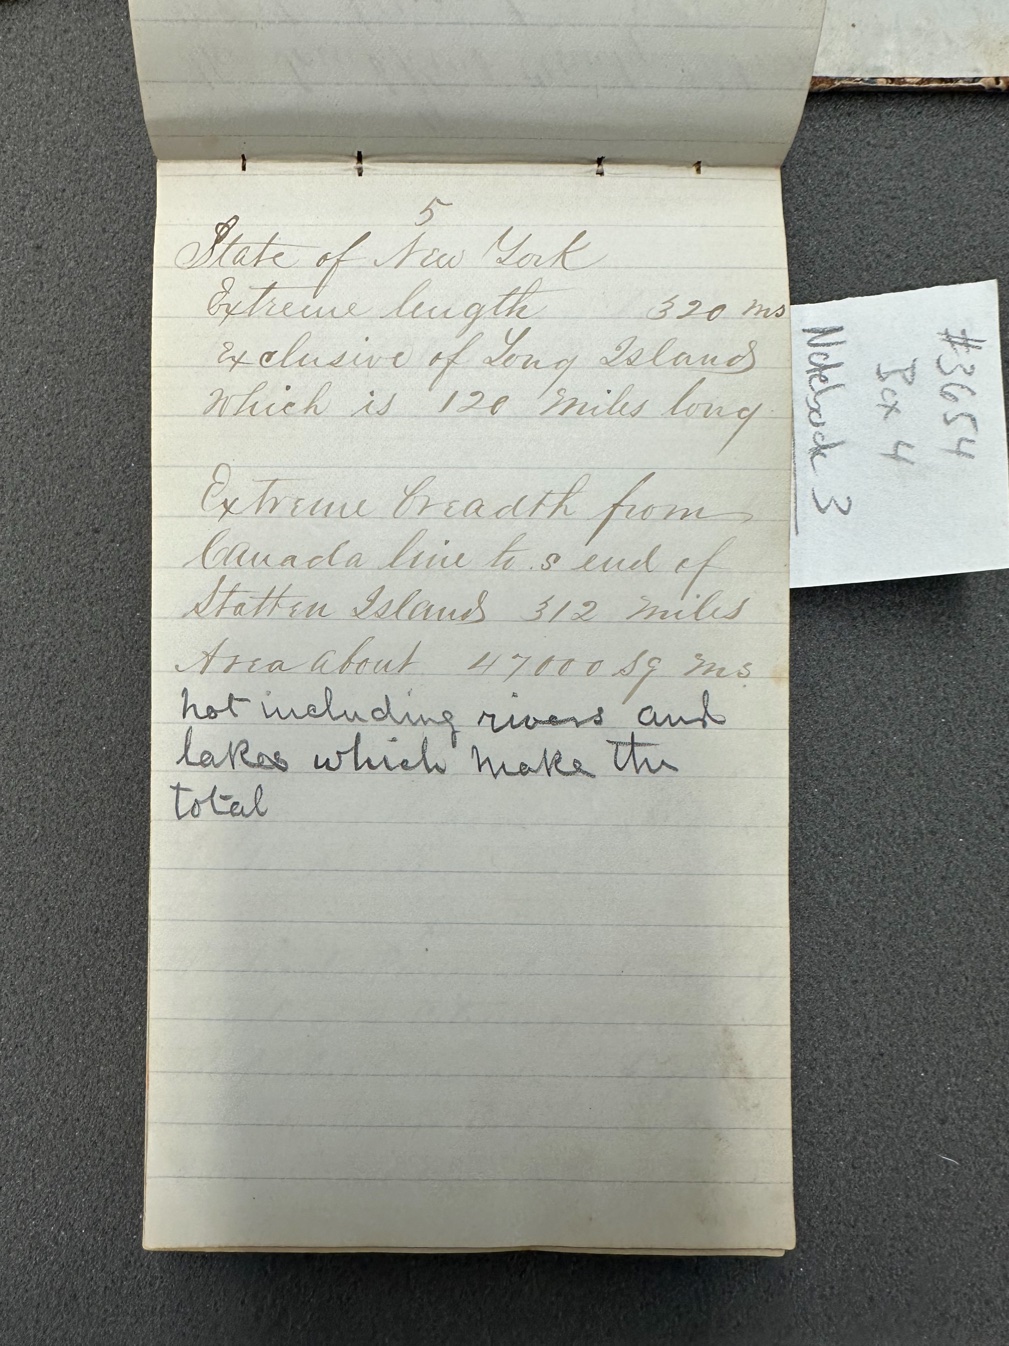 5
State of New York
Extreme length 320 ms
Exclusive of Long Island
Which is 120 Miles long
Extreme breadth from
Canada line to s end of
Statten Island 312 miles
Area about 47000 Sq ms
not including rivers and
lakes which make the
total
#3654
Box 4
Notebook 3